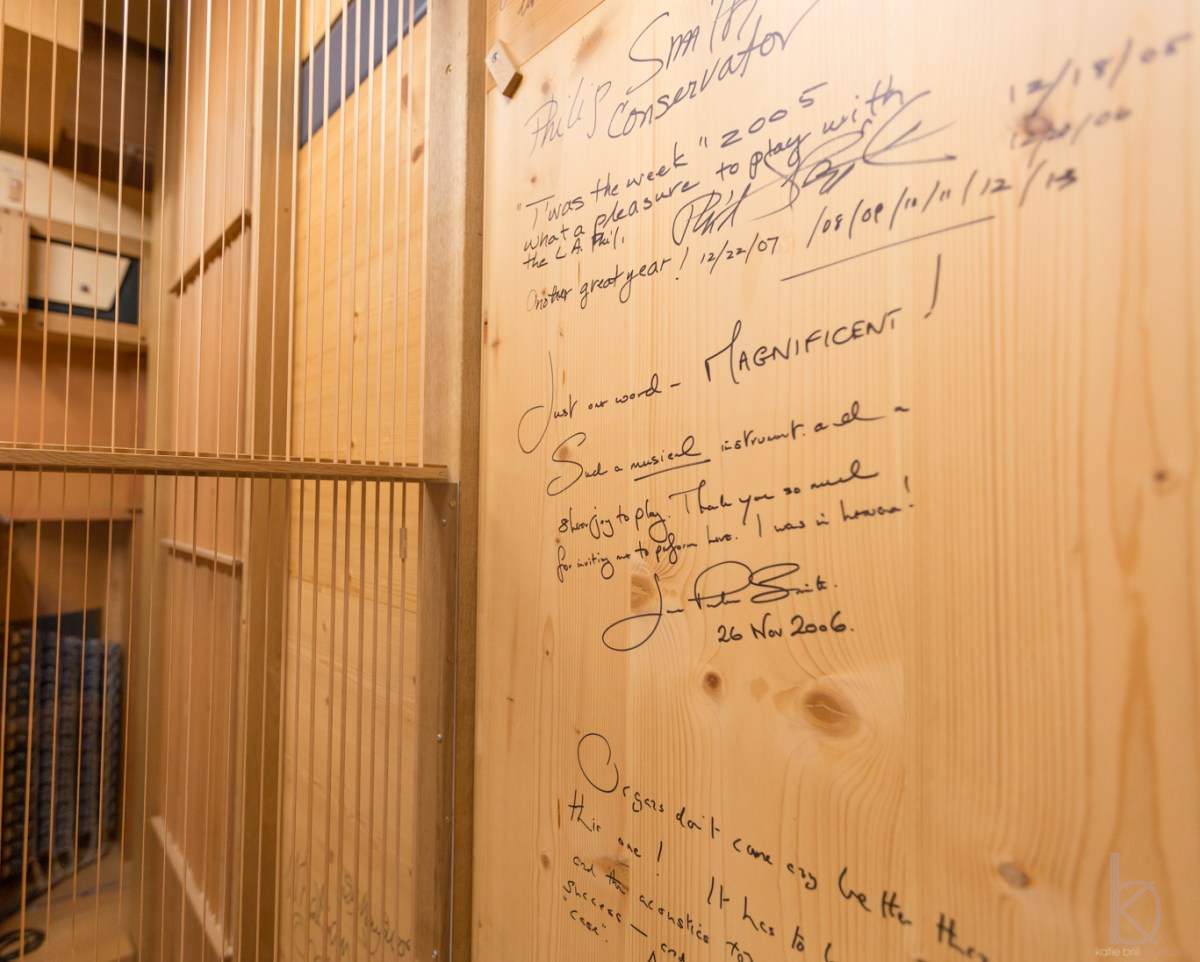 Philip Smith
Conservator
"T'was the week" 2005
what a pleasure to play with
the L.A. Phil.
Phil
12/18/05
12/20/06
another great year! 12/22/07 /08/09/10/11/12/13
Just one word - MAGNIFICENT!
Such a musical instrument and a
sheer joy to play. Thank you so much
for inviting me to perform here. I was in heaven!
26 Nov 2006.
Organs don't come any better than
this one! It has to
and the acoustics too
success — and
"case".
katie brill